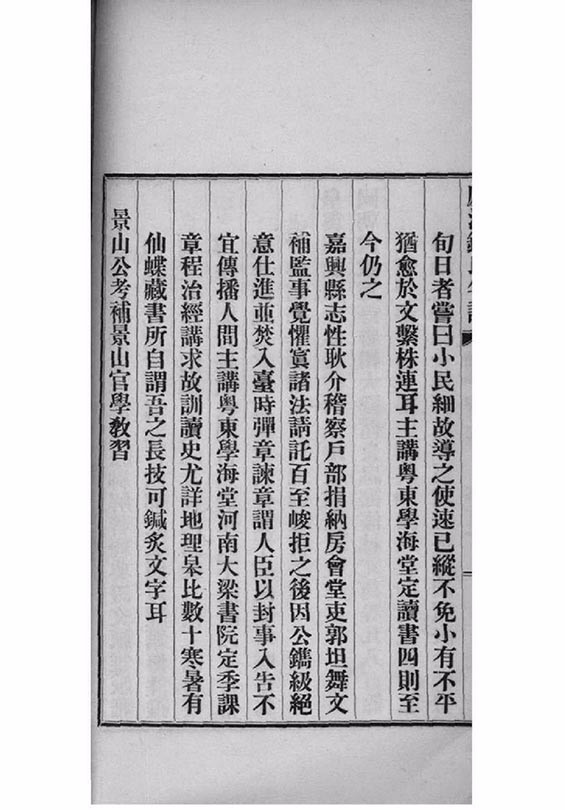 旬日者嘗曰小民細故導之使速已縱不免小有不平
猶愈於文繫株連耳主講粤東學海堂定讀書四則至
今仍之
嘉興縣志性耿介稽察戸部捐納房會堂吏郭坦舞文
補監事覺懼寘諸法請託百至峻拒之後因公鐫級絕
意仕進並焚入臺時彈章諫章謂人臣以封事入告不
宜傳播人間主講粤東學海堂河南大梁書院定季課
章程治經講求故訓讀史尤詳地理皋比數十寒暑有
仙蝶藏書所自謂吾之長技可鍼炙文字耳
景山公考補景山官學教習